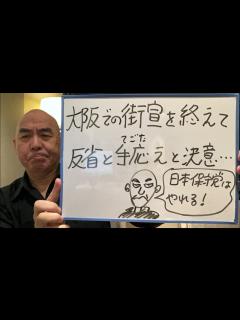 大阪での街宣を終えて
てごた
反省と手応えと決意…
日本保守党は
やれる！